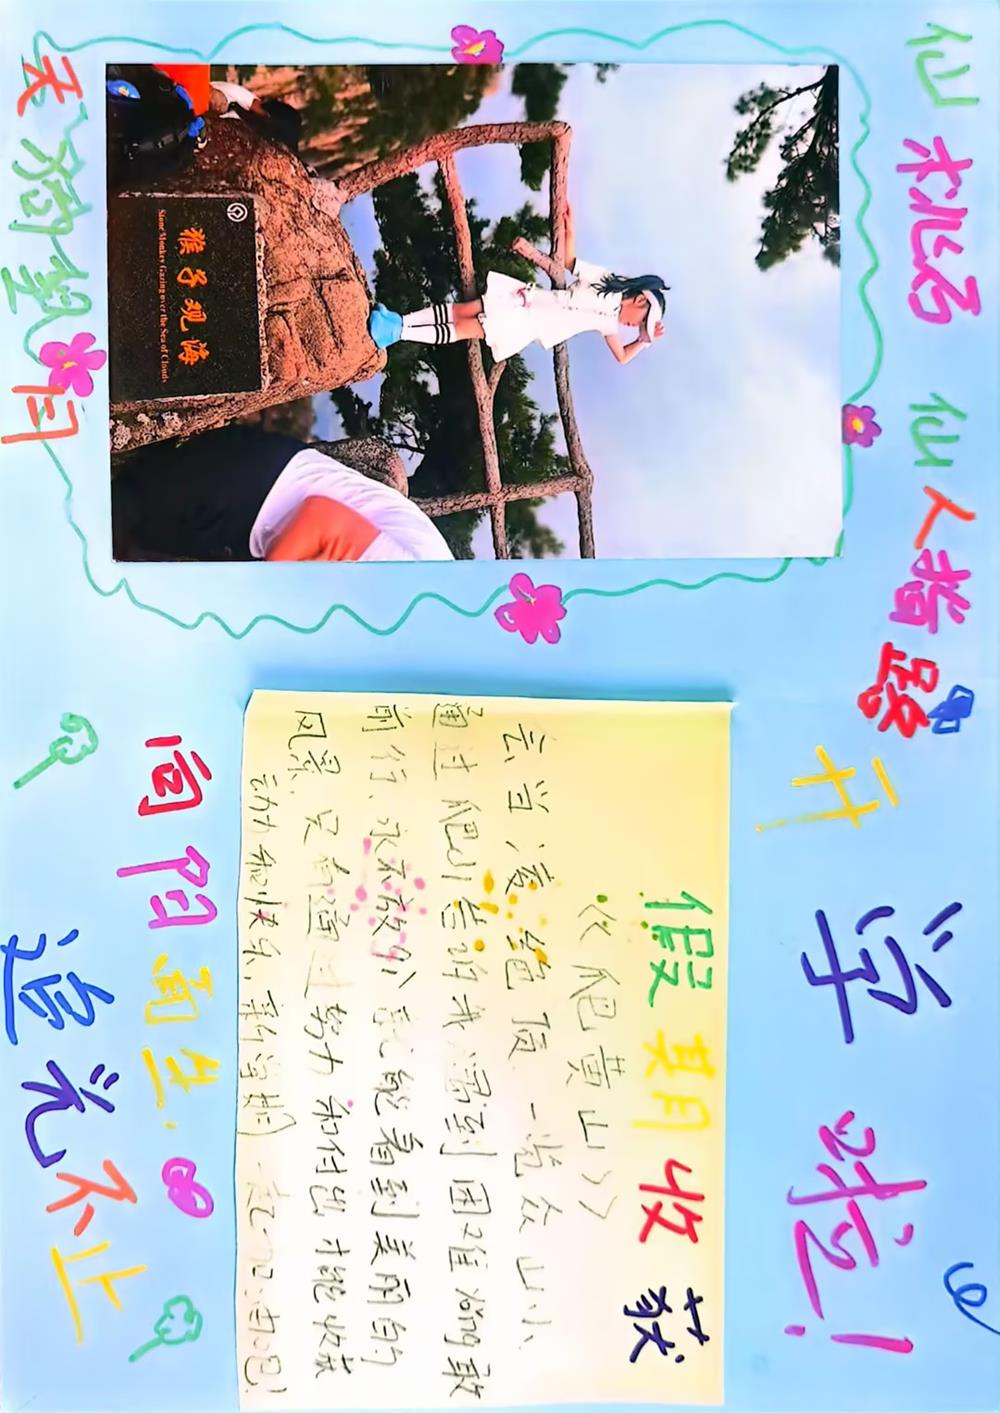 仙桃石 仙人指路
开学
猴子观海
Stone Monkey Gazing over the Sea of Clouds
假期收获
《爬黄山》
会当凌绝顶 一览众山小、
通过爬山告诉我 遇到困难 勇敢
前行、永不放弃 就能看到美丽的
风景. 只有通过努力和付出才能收获
动力和快乐, 新学期一起加油吧!
天狗望月
向阳而生.
追光不止